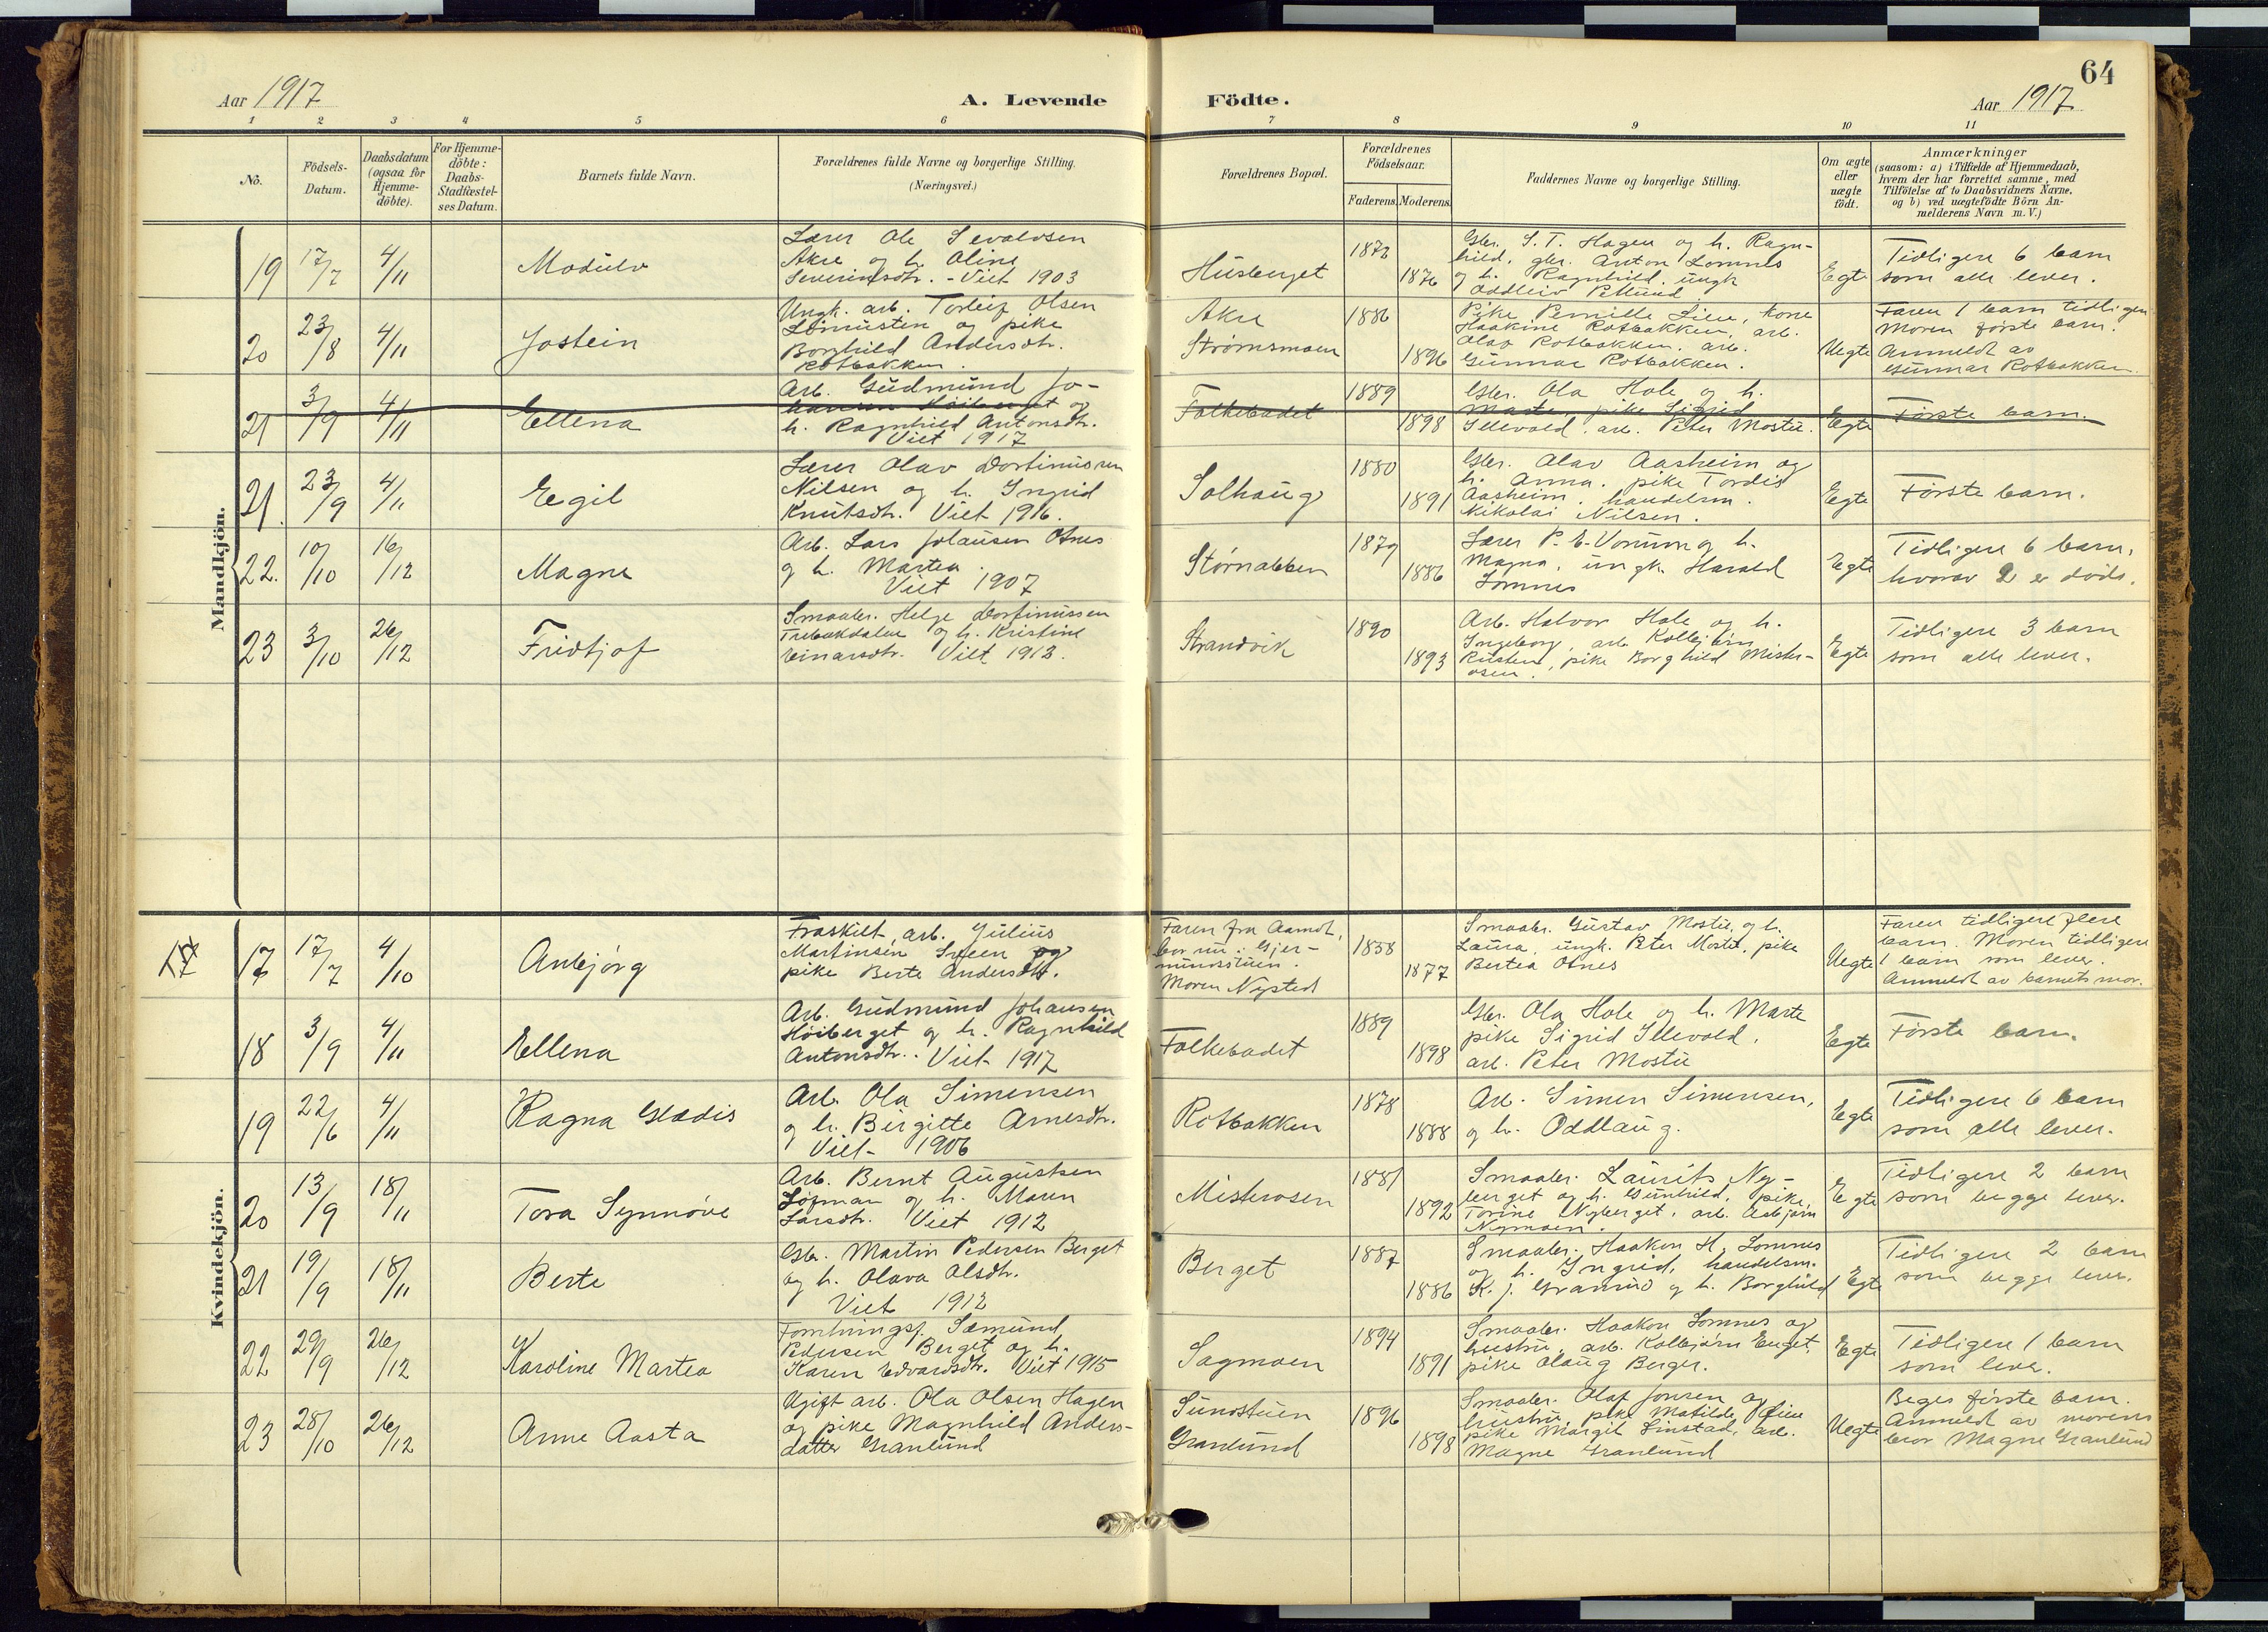 64
Aar 1917
A. Levende Födte.
Aar 1917
1 2 3 4 5 6 7 8 9 10 11
No.
Födsels-
Datum.
Daabsdatum
(ogsaa for
Hjemme-
döbte).
For Hjemme-
döbte:
Daabs-
Stadfæstel-
ses Datum.
Barnets fulde Navn.
Forældrenes fulde Navne og borgerlige Stilling.
(Næringsvei.)
Forældrenes Bopæl.
Forældrenes
Födselsaar.
Faderens. Moderens.
Faddernes Navne og borgerlige Stilling.
Om ægte
eller
uægte
födt.
Anmærkninger
(saasom: a) i Tilfælde af Hjemmedaab,
hvem der har forrettet samme, med
Tilföielse af to Daabsvidners Navne.
og b) ved uægtefödte Börn An-
melderens Navn m. V.)
Mandkjön.
19
17/7
4/11
Modulv
Lærer Ole Sevaldsen
Akre og h. Oline
Severinsdtr. - Viet 1903
Husberget
1872
1876
Gbr. S. T. Hagen og h. Ragn-
hild, gbr. Anton Lomnes
og h. Ragnhild. ungk
Oddleiv
Egte
Tidligere 6 barn
som alle lever.
20
23/8
4/11
Jostein
Ungk. arb. Torleif Olsen
og pike
Borghild Andersdtr.
Rotbakken.
Akre
Strømsmoen
1886
1896
Pike Pernille Lien, kone
Haakine Rotbakken, arb.
Olav Rotbakken. arb.
Gunnar Rotbakken.
Uegte
Faren 1 barn tidligere
Moren første barn.
Anmeldt av
Gunnar Rotbakken.
21
3/9
4/11
Ellena
Arb. Gudmund Jo-
hansen Høiberget og
h. Ragnhild Antonsdtr.
Viet 1917
Falkebadet
1889
1898
Gbr. Ola Hole og h.
Marte, pike Sigrid
Illevold. arb. Peter Mostu.
Egte
Første barn.
21.
23/9
4/11
Egil
Lærer Olav Dortinussen
Nilsen og h. Ingrid
Knutsdtr. Viet 1916.
Solhaug
1880
1891
Gbr. Olav Aasheim og
h. Anna. pike Tordis
Aasheim. handelsm.
Nikolai Nilsen.
Egte
Første barn.
22.
10/10
16/12
Magne
Arb. Lars Johansen Otnes
og h. Martea.
Viet 1907
Størnabben
1879
1886
Lærer P. E. Vorum og h.
Magna, ungk. Harald
Lomnes
Egte
Tidligere 6 barn,
hvorav 2 er døde.
23
3/10
26/12
Fridtjof
Smaabr. Helge Dorfinussen
Trebakdalen og h. Kristine
Einarsdtr. Viet 1913.
Strandvik
1890
1893
Arb. Halvor Hole og h.
Ingeborg, arb. Kolbjørn
pike Borghild Mister-
osen.
Egte
Tidligere 3 barn
som alle lever.
Kvindekjön.
17
17/7
4/10
Anbjørg
Fraskilt arb. Julius
Martinsen og
pike Berte Andersdtr.
Faren fra Aamot,
bor nu i Gjer-
mundstuen.
Moren Nysted
1858
1877
Smaabr. Gustav Mostu, og h.
Laura, ungk. Peter Mostu, pike
Bertea Otnes
Uegte
Faren tidligere flere
barn. Moren tidligere
1 barn som lever.
Anmeldt av barnets mor.
18
3/9
4/11
Ellena
Arb. Gudmund Johansen
Høiberget og h. Ragnhild
Antonsdtr. Viet 1917
Falkebadet
1889
1898
Gbr. Ola Hole og h. Marte
pike Sigrid Illevold,
arb. Peter Mostu
Egte
Første barn.
19
22/6
4/11
Ragna Gladis
Arb. Ola Simensen
og h. Birgitte Arnesdtr.
Viet 1906
Rotbakken
1878
1888
Arb. Simen Simensen,
og h. Oddlaug.
Egte
Tidligere 6 barn
som alle lever.
20
13/9
18/11
Tora Synnøve
Arb. Bernt Augustsen
Løgman og h. Maren
Larsdtr. Viet 1912
Misterosen
1881
1892
Smaabr. Laurits Ny-
berget og h. Gunhild, pike
Torine Nyberget, arb. Asbjørn
Nymoen.
Egte
Tidligere 2 barn
som begge lever.
21
19/9
18/11
Berte
Gbr. Martin Pedersen Berget
og h. Olava Olsdtr.
Viet 1912
Berget
1887
1886
Smaabr. Haakon H. Lomnes
og h. Ingrid, handelsm.
K. J. og h. Borghild
Egte
Tidligere 2 barn
som begge lever.
22
29/9
26/12
Karoline Martea
Sæmund
Pedersen Berget og h.
Karen Edvardsdtr. Viet 1915
Sagmoen
1894
1891
Smaabr. Haakon Lomnes og
hustru, arb. Kolbjørn Enget,
pike Olaug Berger.
Egte
Tidligere 1 barn
som lever.
23
28/10
26/12
Anne Aasta
Ugift arb. Ola Olsen Hagen
og pike Magnhild Anders-
datter Granlund
Sundstuen
Granlund
1896
1898
Smaabr. Olaf Jonsen og
hustru, pike Matilde Lien
pike Margit Linstad, arb.
Magne Granlund
Uegte
Beges første barn.
Anmeldt av morens
bror Magne Granlund